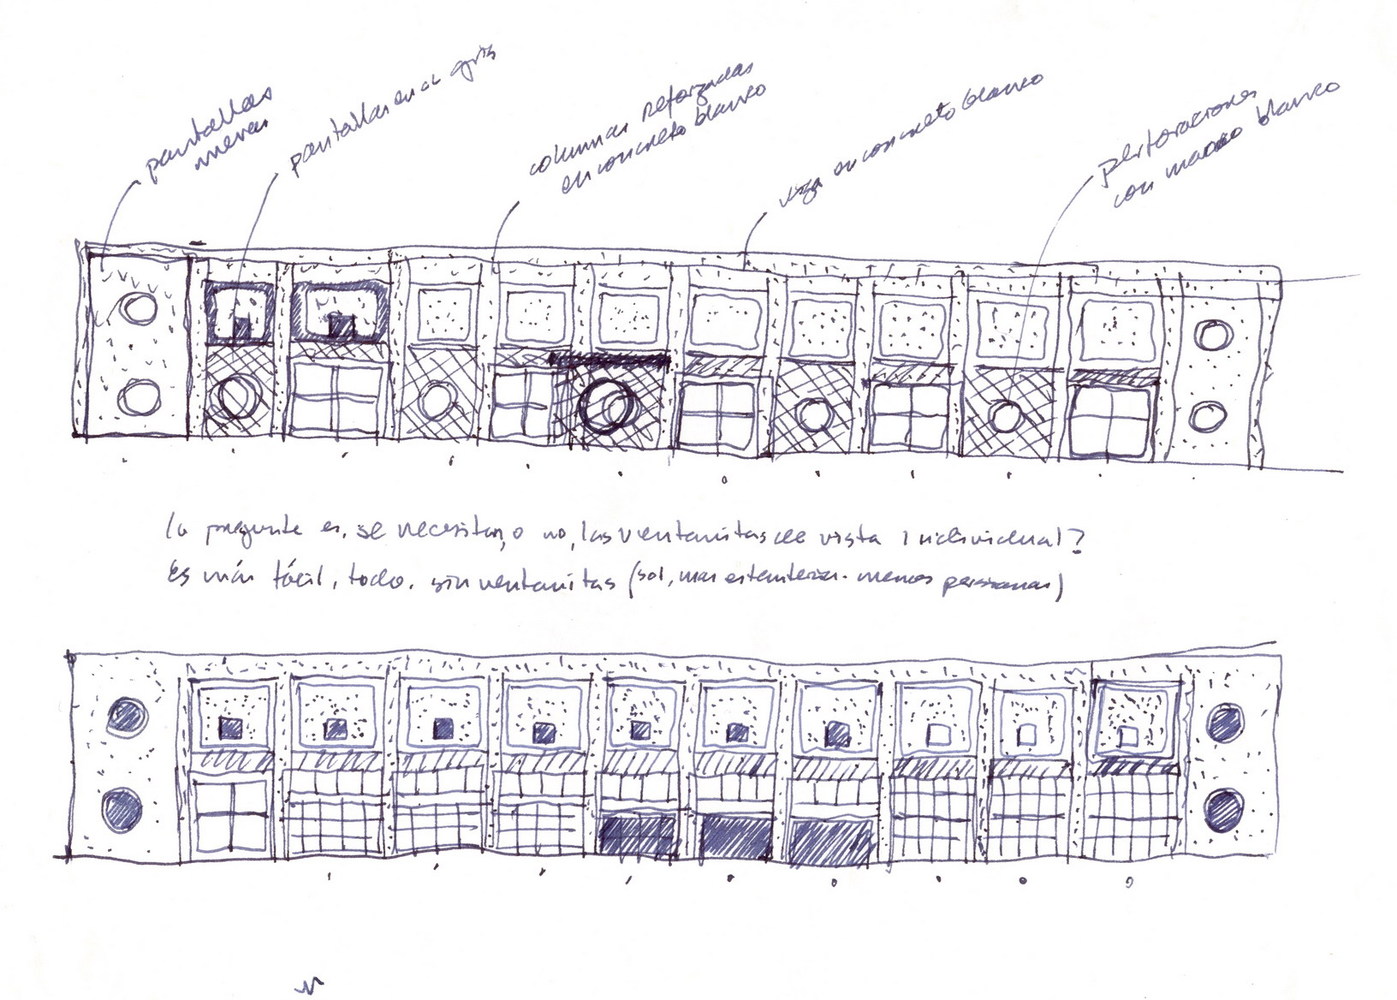 pantallas
nuevas
pantallas en gris
columnas reforzadas
en concreto blanco
viga en concreto blanco
perforaciones
con marco blanco
la pregunta es, se necesitan, o no, las ventanitas de vista individual?
Es más fácil, todo. sin ventanitas (sol, mas menos persianas)
N